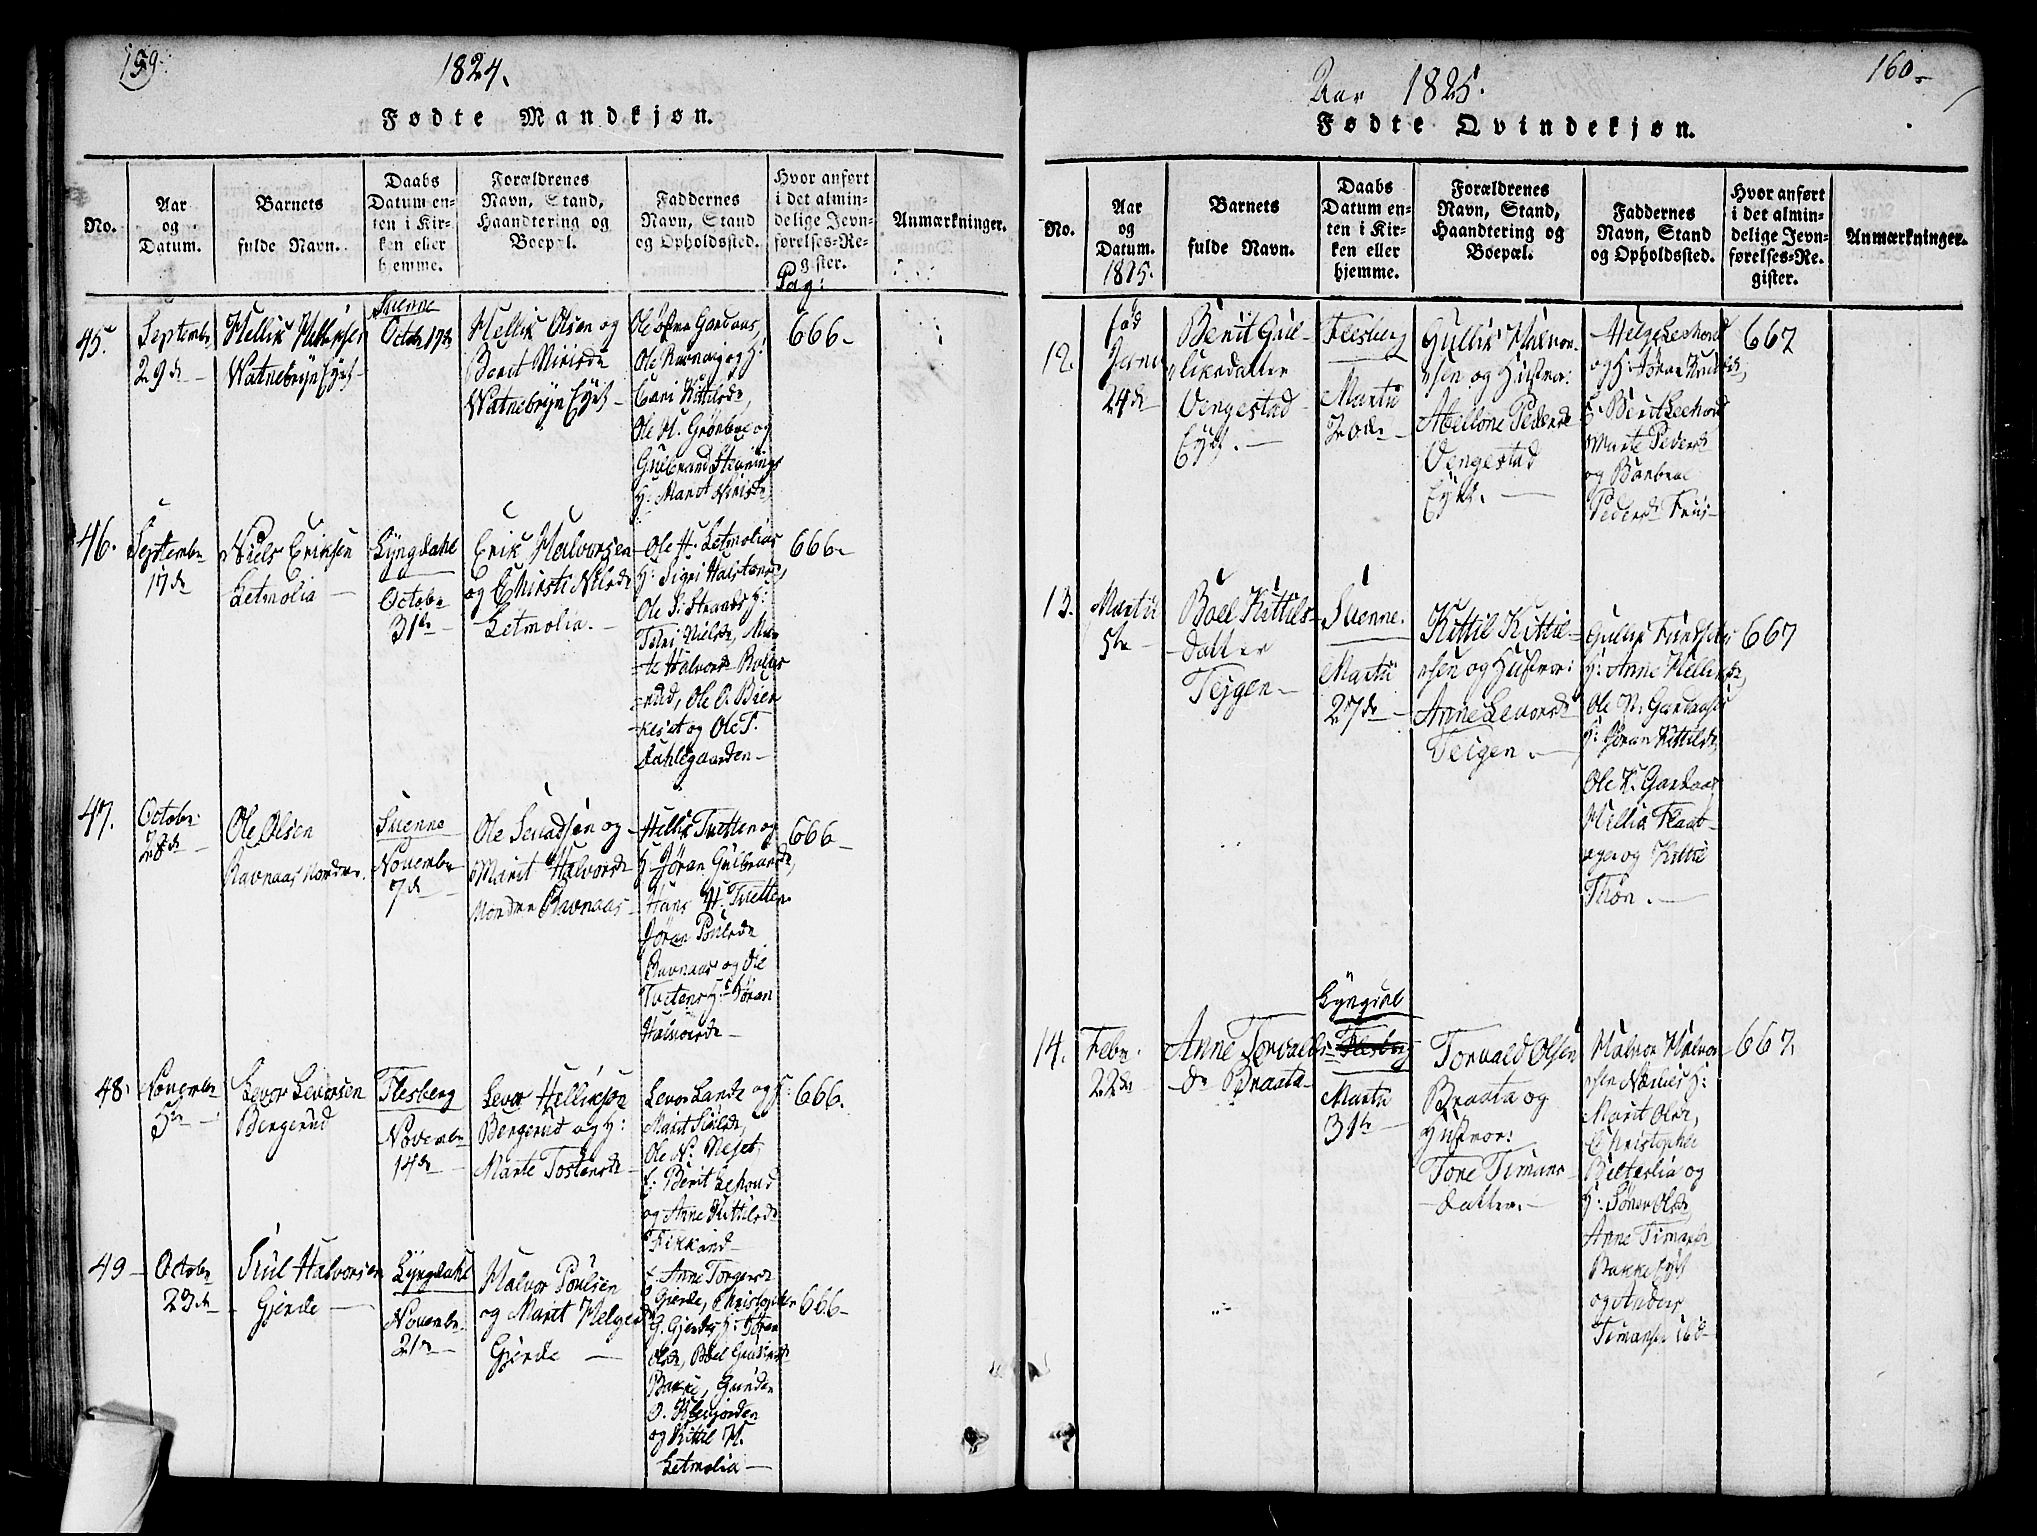 159.
1824.
Fødte Mandkjøn.
No.
Aar
og
Datum.
Barnets
fulde Navn.
Daabs
Datum en-
ten i Kir-
ken eller
hjemme.
Forældrenes
Navn, Stand,
Haandtering og
Boepæl.
Faddernes
Navn, Stand
og Opholdssted.
Hvor anført
i det almin-
delige Jevn-
førelses-Re-
gister.
Pag:
Anmærkninger.
45.
Septembr
29de
Hellik Helliksen
Watnebryn Eyet
Svenne
Octobr 17de
Hellik Olsen og
Berit Nirisdr
Watnebryn Eyet
Ole Gardaas,
Ole Ravnaas og H:
Kari Kittilsdr,
Ole H. Grønboe og
Gulbrand
H: Marit Nirisdr
666
46.
Septembr
17de
Niels Eriksen
Letmolia
Lyngdahl
Octobr
31te
Erik Halvorsen
og Christi Nilsdr
Letmolia.
Ole H. Letmolias
H: Sigri Halstensdr,
Ole S: Strands H:
Nielsdr, Mar-
te Halvorsd
rud, Ole O. Bær-
keset og Ole T.
Dahlegaarden
666
47.
Octobr:
28de
Ole Olsen
Ravnaas Nordre.
Svenne
Novembr
7de
Ole Sevadsøn og
Marit Halvorsdr
Nordre Ravnaas
Hellik Tvetten og
H: Jøran Gulbrandsdr,
Hans H. Tvetten
Jøran Poulsdr
Ravnaas og Ole
Tvetens H: Jøran
Halvorsdr
666
48.
Novembr
5te
Levor Levorsen
Bergerud
Flesberg
Novembr
14de
Levor Helliksøn
Bergerud og H:
Marte Tostensdr
Levor Lande og H:
Marit
Ole N: Neset,
E: Berit Lekord
og Anne Kittilsdr
Fekkand
666.
49
Octobr
23de
Juul Halvorsen
Gjerde
Lyngdahl
Novembr
21de
Halvor Poulsen
og Marit Helgesdr
Gjerde
E: Anne Torgersdr
Gjerde, Christopher
G. Gjerdes H: Jøran
Olsdr, Boel
Bakke, Gunder
O. Kleujorden
og Kittil H.
Letmolia
666
160
Aar 1825.
Fødte Qvindekjøn.
No.
Aar
og
Datum.
1825.
Barnets
fulde Navn.
Daabs
Datum en-
ten i Kir-
ken eller
hjemme.
Forældrenes
Navn, Stand,
Haandtering og
Boepæl.
Faddernes
Navn, Stand
og Opholdssted.
Hvor anført
i det almin-
delige Jevn-
førelses-Re-
gister.
Anmærkninger.
12.
fød
24de
Berit Gul-
liksdatter
Vengestad
Eyet.
Flesberg
Martii
20de
Gullik Halvor-
sen og Hustroe:
Pedersdr
Vengestad
Eyet.
Helge Lekord
og H: Jøran
E: Berit Lekord
Marte Pedersdr
og Barbroe
Pedersdr
667
13.
Martii
5te
Boel Kittils-
datter
Teigen
Svenne.
Martii
27de
Kittil Kittil-
sen og Hustroe:
Anne Levorsdr
Teigen.
Gullik
H: Anne Helliksdr,
Ole N: Gardaas
H: Jøran Kittilsdr,
Ole K. Gardaas
Hellik
og Kittil
Thøn.
667
14.
Febr.
22de
Anne Torvalds-
dr Braata
Lyngdal
Flesberg
Martii
31te
Torvald Olsen
Braata og
Hustroe:
Tone Timans-
datter.
Halvor Halvor-
sen H:
Marit Olsdr,
Christopher
Belteslia og
H: Olsdr,
Anne Timansdr
Bakke Eyet
og Anders
Timansen
667